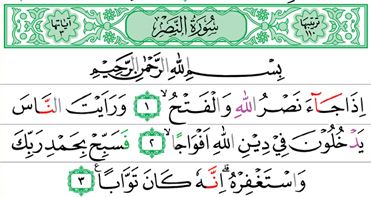 ترتيبها ١١٠ سُورَةُ النَّصْرِ آياتها ٣
بِسْمِ اللهِ الرَّحْمٰنِ الرَّحِيْمِ
اِذَا جَآءَ نَصْرُ اللهِ وَالْفَتْحُ ۙ ١ وَرَاَيْتَ النَّاسَ
يَدْخُلُوْنَ فِيْ دِيْنِ اللهِ اَفْوَاجًا ۙ ٢ فَسَبِّحْ بِحَمْدِ رَبِّكَ
وَاسْتَغْفِرْهُ ۗ اِنَّهٗ كَانَ تَوَّابًا ٣